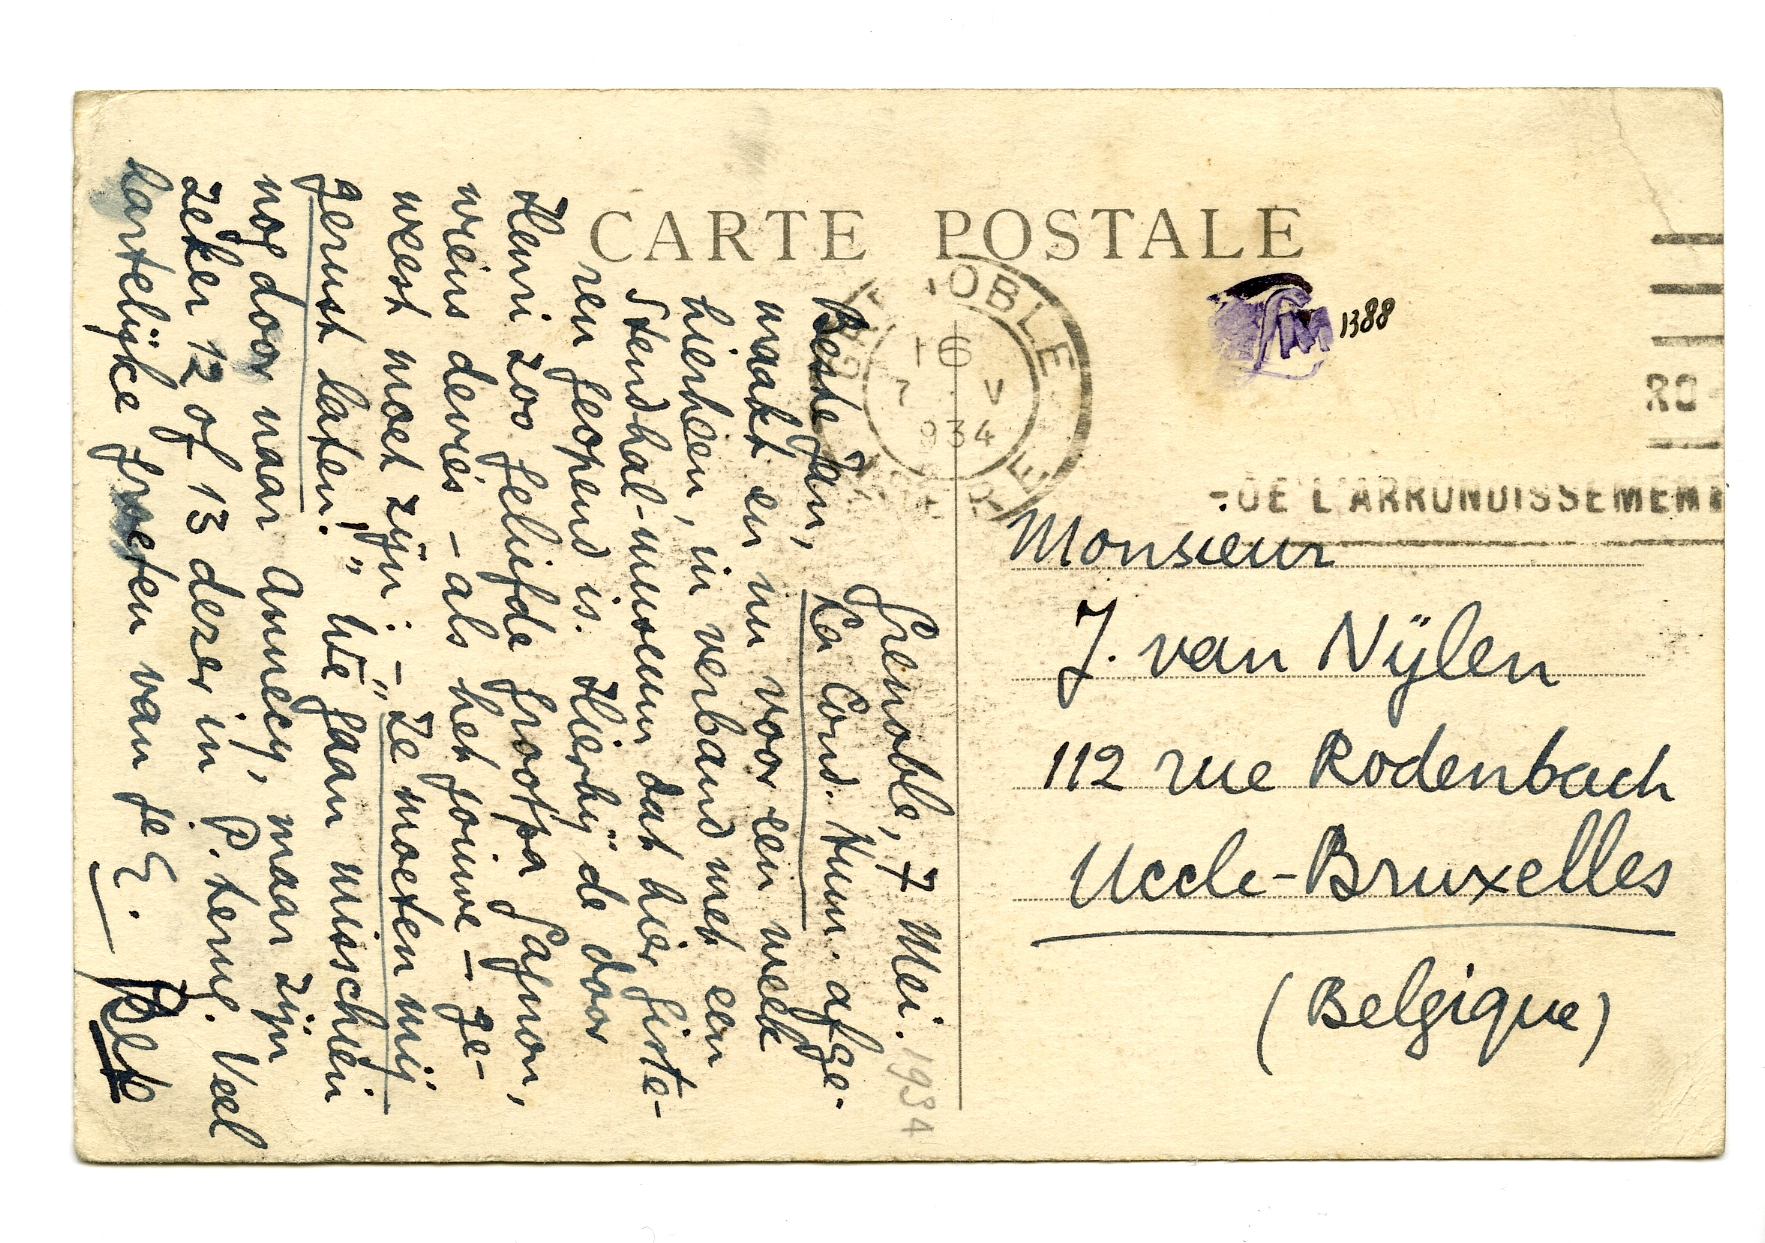 CARTE POSTALE
GRENOBLE
16
7 V
934
ISERE
RO
DE L'ARRONDISSEMENT
1388
Monsieur
J. van Nijlen
112 rue Rodenbach
Uccle-Bruxelles
(Belgique)
Grenoble, 7 Mei. 1934
Beste Jan, La Cond. Hum. afge-
maakt en nu voor een week
hierheen, in verband met een
Stendhal-museum dat hier giste-
ren geopend is. Hierbij de door
Henri zoo geliefde grootpa Gagnon,
wiens devies - als het jouwe - ge-
weest moet zijn: - "Ze moeten mij
gerust laten!" We gaan misschien
nog door naar Annecy, maar zijn
zeker 12 of 13 dezer in P. terug. Veel
hartelijke groeten van je E.
Bep